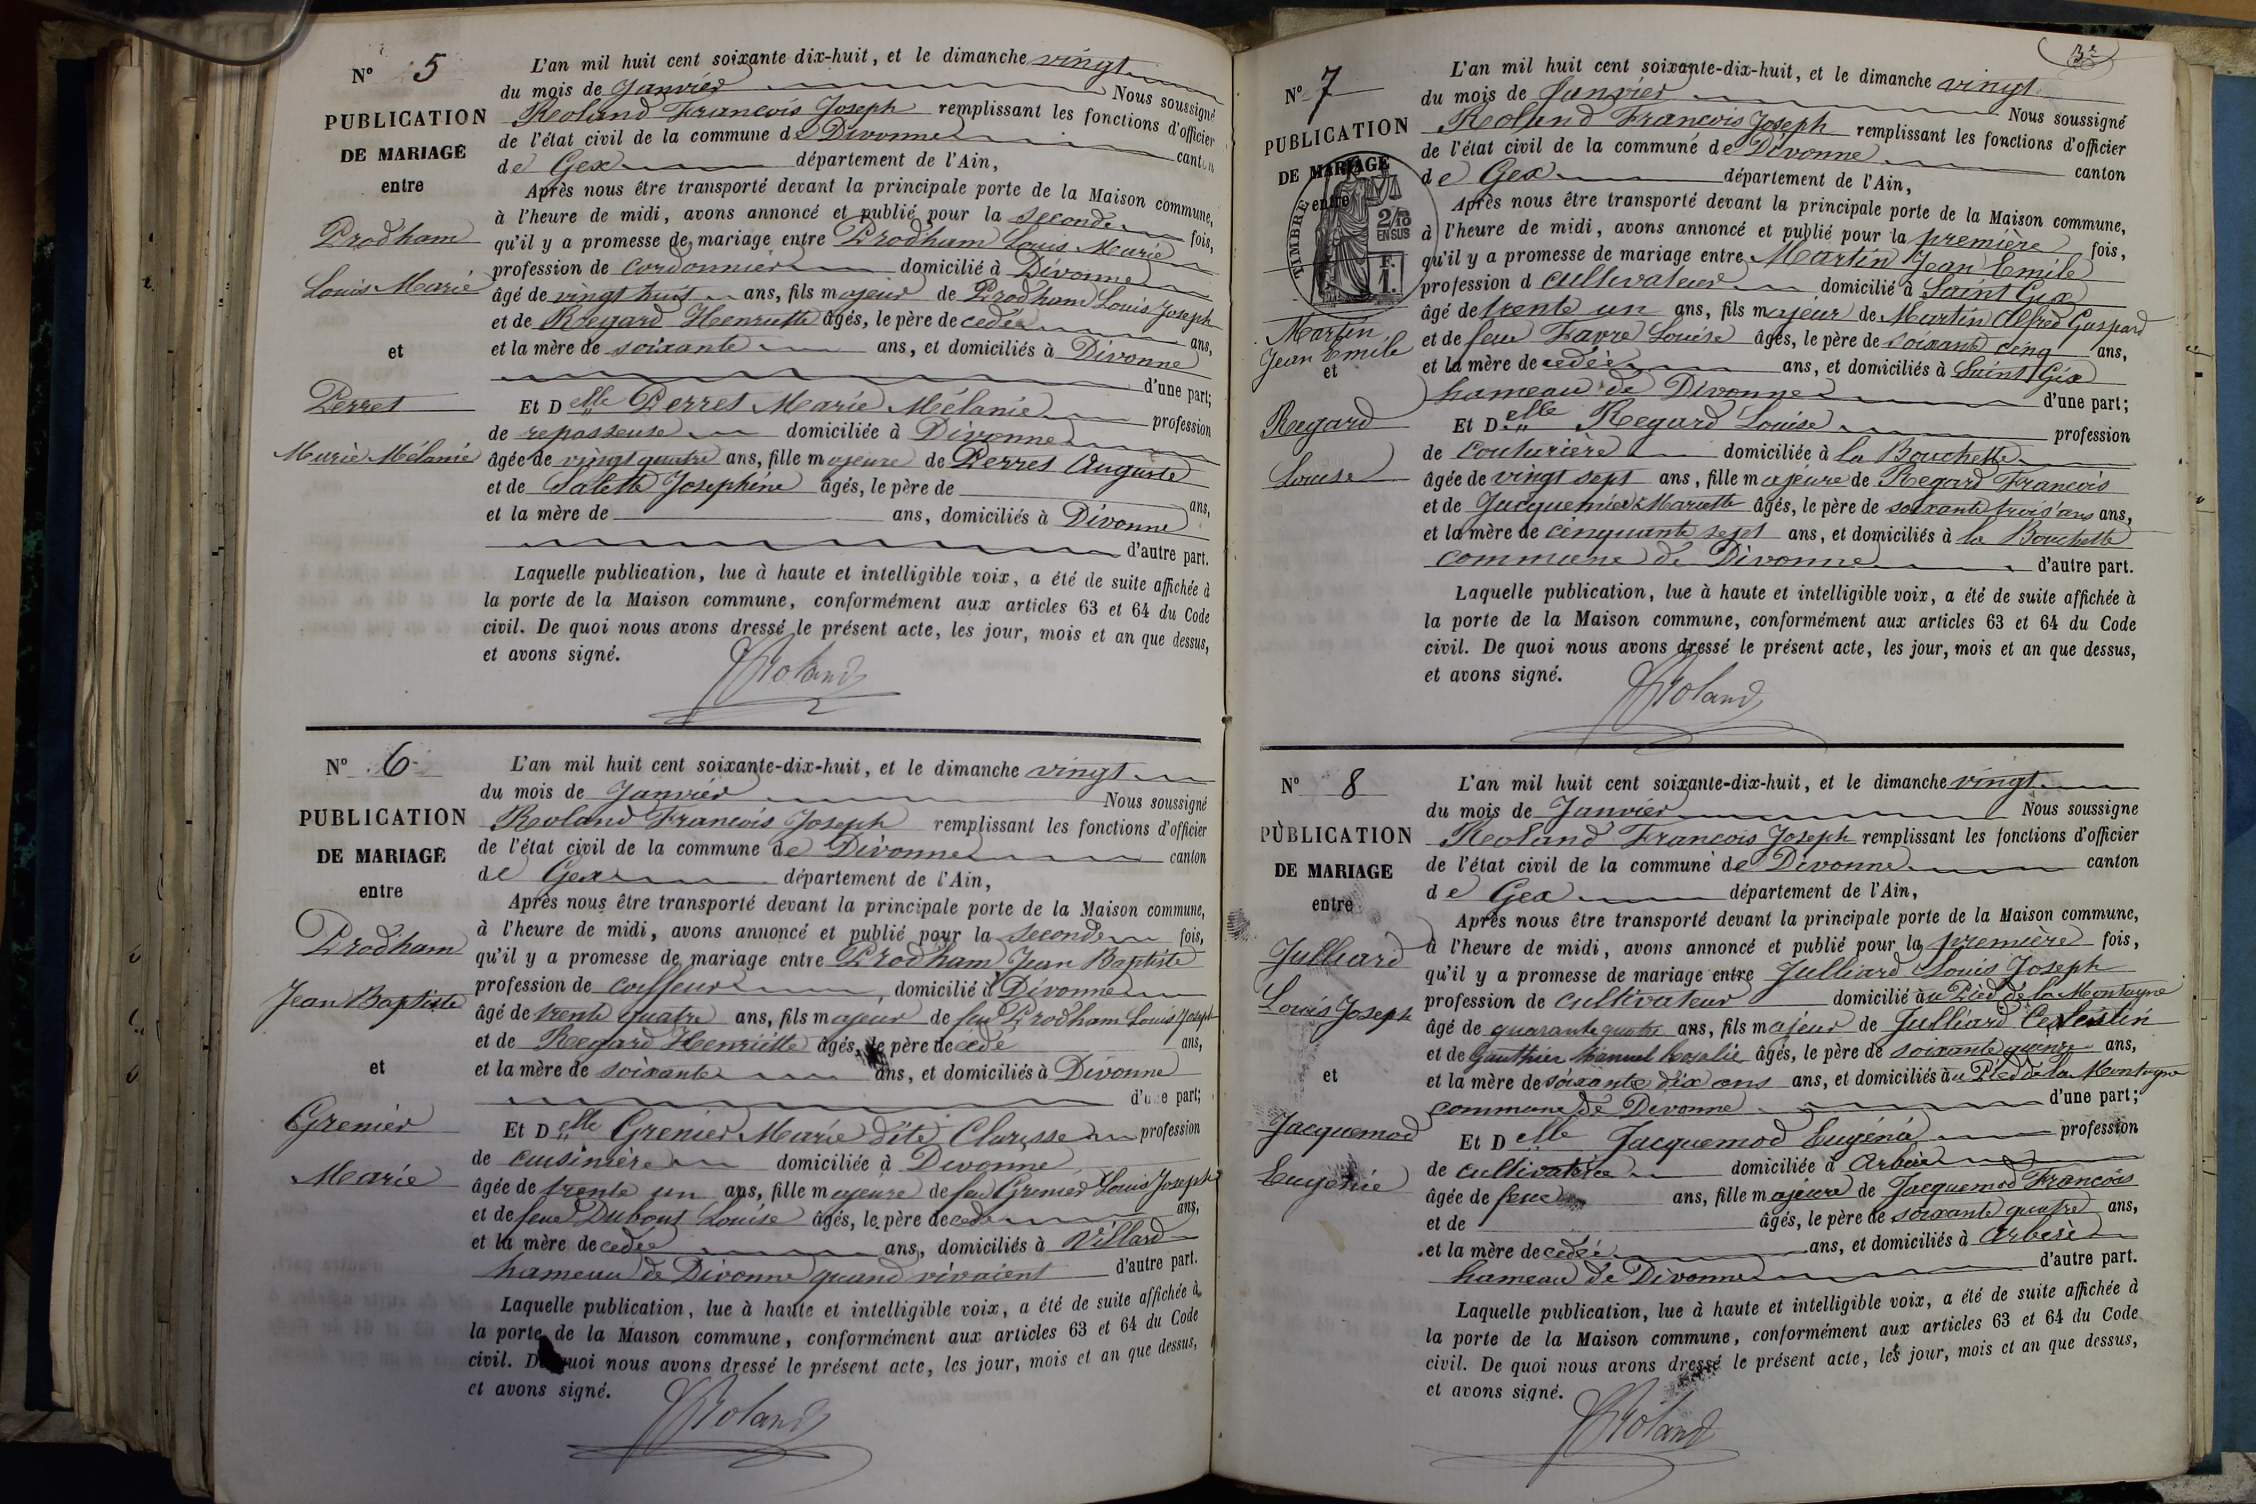 N° 5
PUBLICATION
DE MARIAGE
entre
Prodham
Louis Marie
et
Perret
Marie Mélanie
L'an mil huit cent soixante-dix-huit, et le dimanche vingt
du mois de Janvier Nous soussigné
Roland François Joseph remplissant les fonctions d'officier
de l'état civil de la commune de Divonne canton
de Gex département de l'Ain,
Après nous être transporté devant la principale porte de la Maison commune,
à l'heure de midi, avons annoncé et publié pour la seconde fois,
qu'il y a promesse de mariage entre Prodham Louis Marie
profession de cordonnier domicilié à Divonne
âgé de vingt huit ans, fils majeur de Prodham Louis Joseph
et de Regard Henriette âgés, le père de cedé ans,
et la mère de soixante ans, et domiciliés à Divonne
d'une part;
Et Delle Perret Marie Mélanie profession
de repasseuse domiciliée à Divonne
âgée de vingt quatre ans, fille majeure de Perret Auguste
et de Salette Josephine âgés, le père de ans,
et la mère de ans, domiciliés à Divonne
d'autre part.
Laquelle publication, lue à haute et intelligible voix, a été de suite affichée à
la porte de la Maison commune, conformément aux articles 63 et 64 du Code
civil. De quoi nous avons dressé le présent acte, les jour, mois et an que dessus,
et avons signé.
Roland
N° 6
PUBLICATION
DE MARIAGE
entre
Prodham
Jean Baptiste
et
Grenier
Marie
L'an mil huit cent soixante-dix-huit, et le dimanche vingt
du mois de Janvier Nous soussigné
Roland François Joseph remplissant les fonctions d'officier
de l'état civil de la commune de Divonne canton
de Gex département de l'Ain,
Après nous être transporté devant la principale porte de la Maison commune,
à l'heure de midi, avons annoncé et publié pour la seconde fois,
qu'il y a promesse de mariage entre Prodham Jean Baptiste
profession de coiffeur, domicilié à Divonne
âgé de trente quatre ans, fils majeur de feu Prodham Louis Joseph
et de Regard Henriette âgés, le père de cedé ans,
et la mère de soixante ans, et domiciliés à Divonne
d'une part;
Et Delle Grenier Marie dite Clarisse profession
de cuisinière domiciliée à Divonne
âgée de trente un ans, fille majeure de feu Grenier Louis Joseph
et de feue Dubout Louise âgés, le père decedé ans,
et la mère decedée ans, domiciliés à Villard
hameau de Divonne quand vivaient d'autre part.
Laquelle publication, lue à haute et intelligible voix, a été de suite affichée à
la porte de la Maison commune, conformément aux articles 63 et 64 du Code
civil. De quoi nous avons dressé le présent acte, les jour, mois et an que dessus,
et avons signé.
Roland
3
N° 7
PUBLICATION
DE MARIAGE
entre
TIMBRE
2/10
EN SUS
F.
1.
Martin
Jean Emile
et
Regard
Louise
L'an mil huit cent soixante-dix-huit, et le dimanche vingt
du mois de Janvier Nous soussigné
Roland François Joseph remplissant les fonctions d'officier
de l'état civil de la commune de Divonne canton
de Gex département de l'Ain,
Après nous être transporté devant la principale porte de la Maison commune,
à l'heure de midi, avons annoncé et publié pour la première fois,
qu'il y a promesse de mariage entre Martin Jean Emile
profession d cultivateur domicilié à Saint Gix
âgé de trente un ans, fils majeur de Martin Alfred Gaspard
et de feue Favre Louise âgés, le père de soixante cinq ans,
et la mère de cedée ans, et domiciliés à Saint Gix
hameau de Divonne d'une part;
Et Delle Regard Louise profession
de couturière domiciliée à la Bouchette
âgée de vingt sept ans, fille majeure de Regard François
et de Jacquemier Mariette âgés, le père de soixante trois ans ans,
et la mère de cinquante sept ans, et domiciliés à la Bouchette
commune de Divonne d'autre part.
Laquelle publication, lue à haute et intelligible voix, a été de suite affichée à
la porte de la Maison commune, conformément aux articles 63 et 64 du Code
civil. De quoi nous avons dressé le présent acte, les jour, mois et an que dessus,
et avons signé.
Roland
N° 8
PUBLICATION
DE MARIAGE
entre
Julliard
Louis Joseph
et
Jacquemod
Eugénie
L'an mil huit cent soixante-dix-huit, et le dimanche vingt
du mois de Janvier Nous soussigne
Roland François Joseph remplissant les fonctions d'officier
de l'état civil de la commune de Divonne canton
de Gex département de l'Ain,
Après nous être transporté devant la principale porte de la Maison commune,
à l'heure de midi, avons annoncé et publié pour la première fois,
qu'il y a promesse de mariage entre Julliard Louis Joseph
profession de cultivateur domicilié au Pied de la Montagne
âgé de quarante quatre ans, fils majeur de Julliard Celestin
et de Gauthier Manuel Rosalie âgés, le père de soixante quinze ans,
et la mère de soixante dix ans ans, et domiciliés au Pied de la Montagne
commune de Divonne d'une part;
Et Delle Jacquemod Eugénie profession
de cultivatrice domiciliée à Arbère
âgée de feue ans, fille majeure de Jacquemod François
et de âgés, le père de soixante quatre ans,
et la mère decedée ans, et domiciliés à Arbère
hameau de Divonne d'autre part.
Laquelle publication, lue à haute et intelligible voix, a été de suite affichée à
la porte de la Maison commune, conformément aux articles 63 et 64 du Code
civil. De quoi nous avons dressé le présent acte, les jour, mois et an que dessus,
et avons signé.
Roland